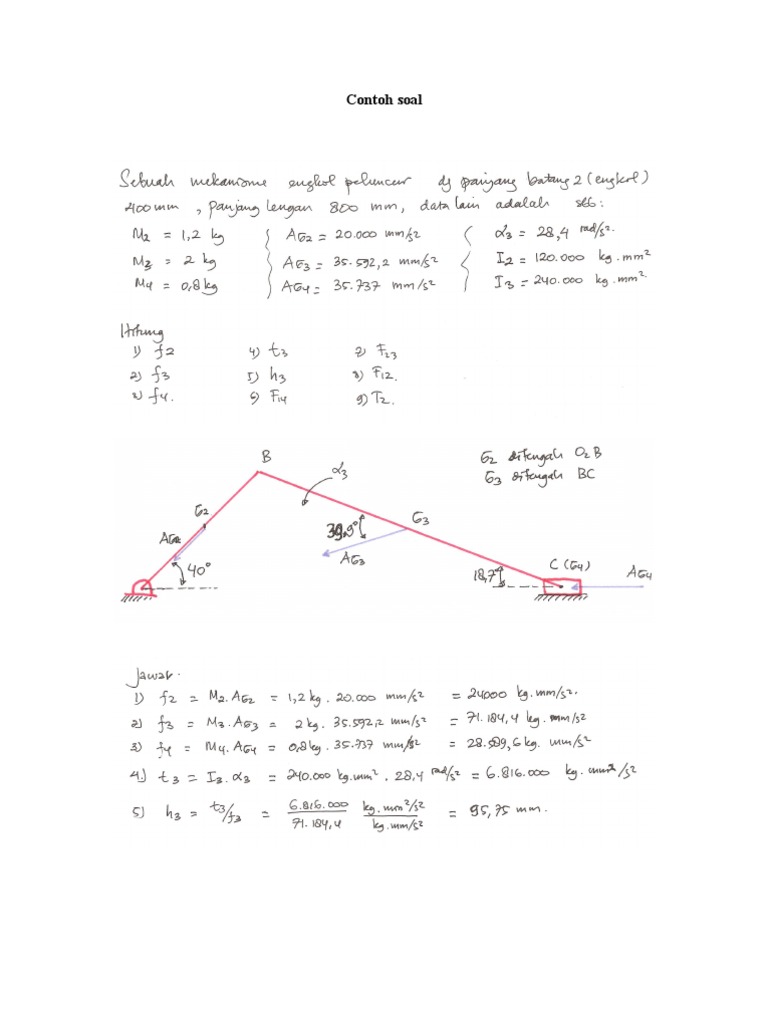 Contoh soal
Sebuah mekanisme engkol peluncur dg panjang batang 2 (engkol)
400 mm, panjang lengan 800 mm, data lain adalah sbb:
M2 = 1,2 kg AG2 = 20.000 mm/s² α3 = 28,4 rad/s².
M3 = 2 kg AG3 = 35.592,2 mm/s² I2 = 120.000 kg.mm²
M4 = 0,8 kg AG4 = 35.737 mm/s² I3 = 240.000 kg.mm²
Hitung
1) f2 4) t3 7) F23
2) f3 5) h3 8) F12.
3) f4. 6) F14 9) T2.
B
α3
G2 ditengah O2B
G3 ditengah BC
G2
G3
AG2
39,9°
AG3
40°
18,7°
C (G4)
AG4
Jawab.
1) f2 = M2.AG2 = 1,2 kg . 20.000 mm/s² = 24000 kg.mm/s².
2) f3 = M3.AG3 = 2 kg. 35.592,2 mm/s² = 71.184,4 kg.mm/s²
3) f4 = M4.AG4 = 0,8kg. 35.737 mm/s² = 28.589,6 kg. mm/s²
4.) t3 = I3.α3 = 240.000 kg.mm² . 28,4 rad/s² = 6.816.000 kg. mm²/s²
5) h3 = t3/f3 = 6.816.000 kg.mm²/s² = 95,75 mm.
71.184,4 kg.mm/s²